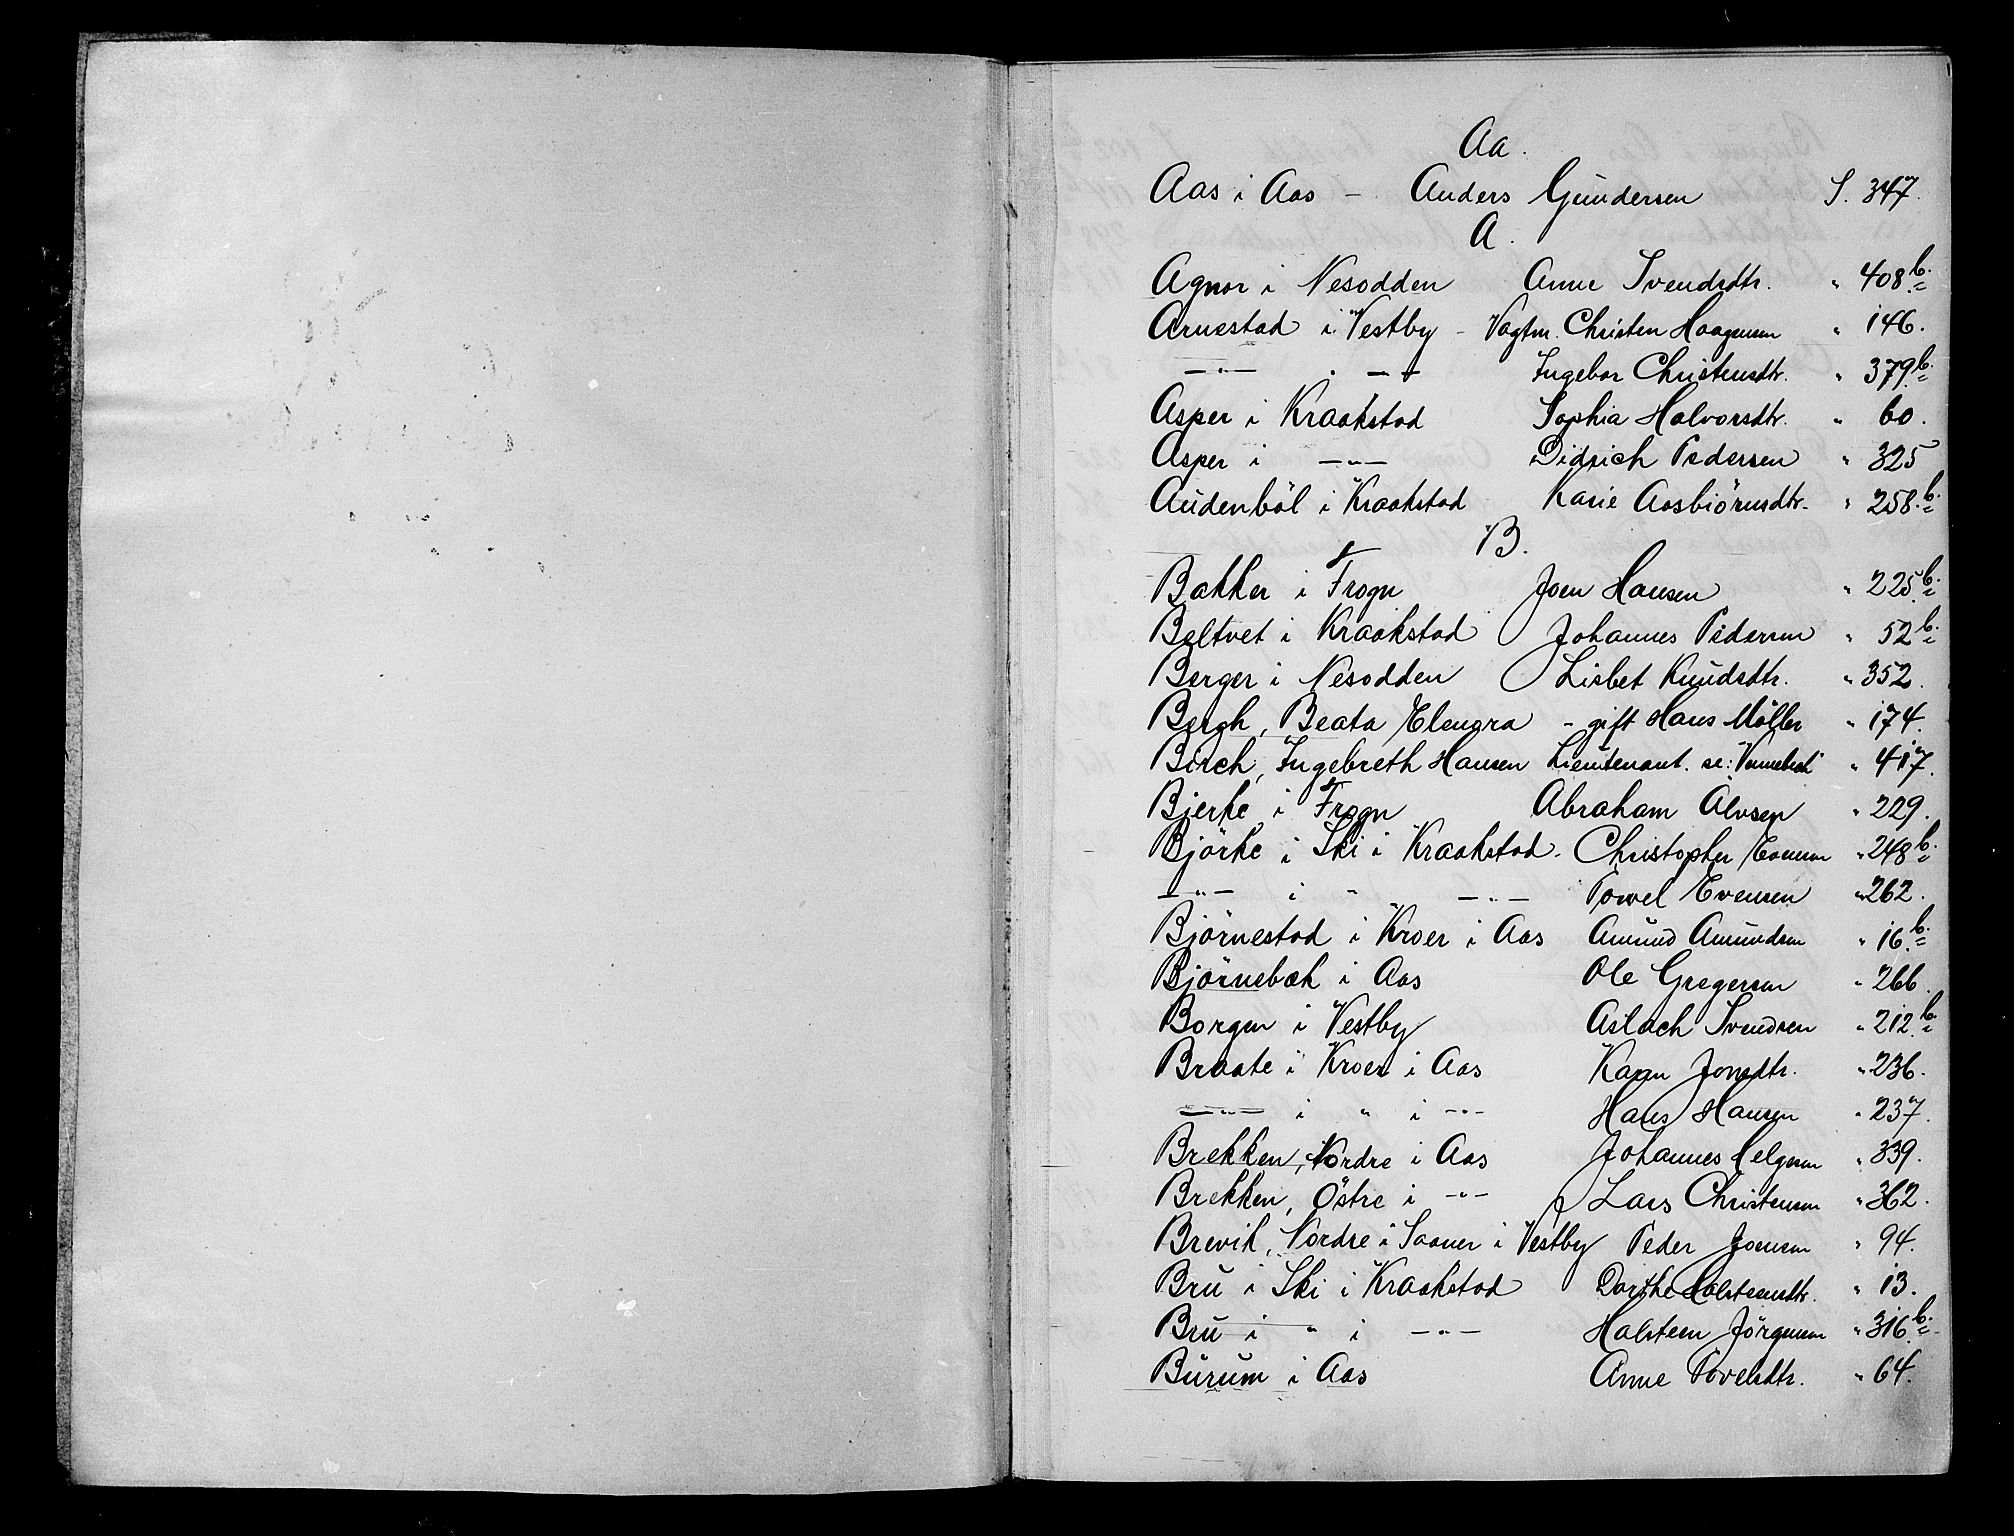 Aa.
Aas i Aas - Anders Gundersen S. 347.
A.
Agnor i Nesodden Anne Svendsdtr. " 408 b.
Arnestad i Vestby - Vagtm. Christen Haagensen " 146.
—"— " —"— Ingebor Christensdtr. " 379 b.
Asper i Kraakstad Sophia Halvorsdtr. " 60.
Asper i —"— Didrich Pedersen " 325
Audenböl i Kraakstad Karie Aasbiörnsdtr. " 258 b.
B.
Bakker i Frogn Joen Hansen " 225 b.
Beltvet i Kraakstad Johannes Pedersen " 52 b.
Berger i Nesodden Lisbet Knudsdtr. " 352.
Bergh, Beata Elenora - gift Hans Möller " 174.
Birch, Ingebreth Hansen Lieutenant. se: " 417.
Bjerke i Frogn Abraham Olvsen " 229.
Björke i Ski i Kraakstad. Christopher Evensen " 248 b.
—"— i " —"— Povel Evensen " 262.
Björnestad i Kroer i Aas Amund Amundsen " 16 b.
Björnebæk i Aas Ole Gregersen " 266.
Borgen i Vestby Aslach Svendsen " 212 b.
Braate i Kroer i Aas Karen Jonsdtr. " 236.
—"— i " i -"- Hans Hansen " 237.
Brekken, Nordre i Aas Johannes Helgesen " 339.
Brekken, Östre i -"- Lars Christensen " 362.
Brevik, Nordre i Saaner i Vestby Peder Joensen " 94.
Bru i Ski i Kraakstad Dorthe Halsteensdtr. " 13.
Bru i " i —"— Halsteen Jörgensen " 316 b.
Burum i Aas Anne Povelsdtr. " 64.